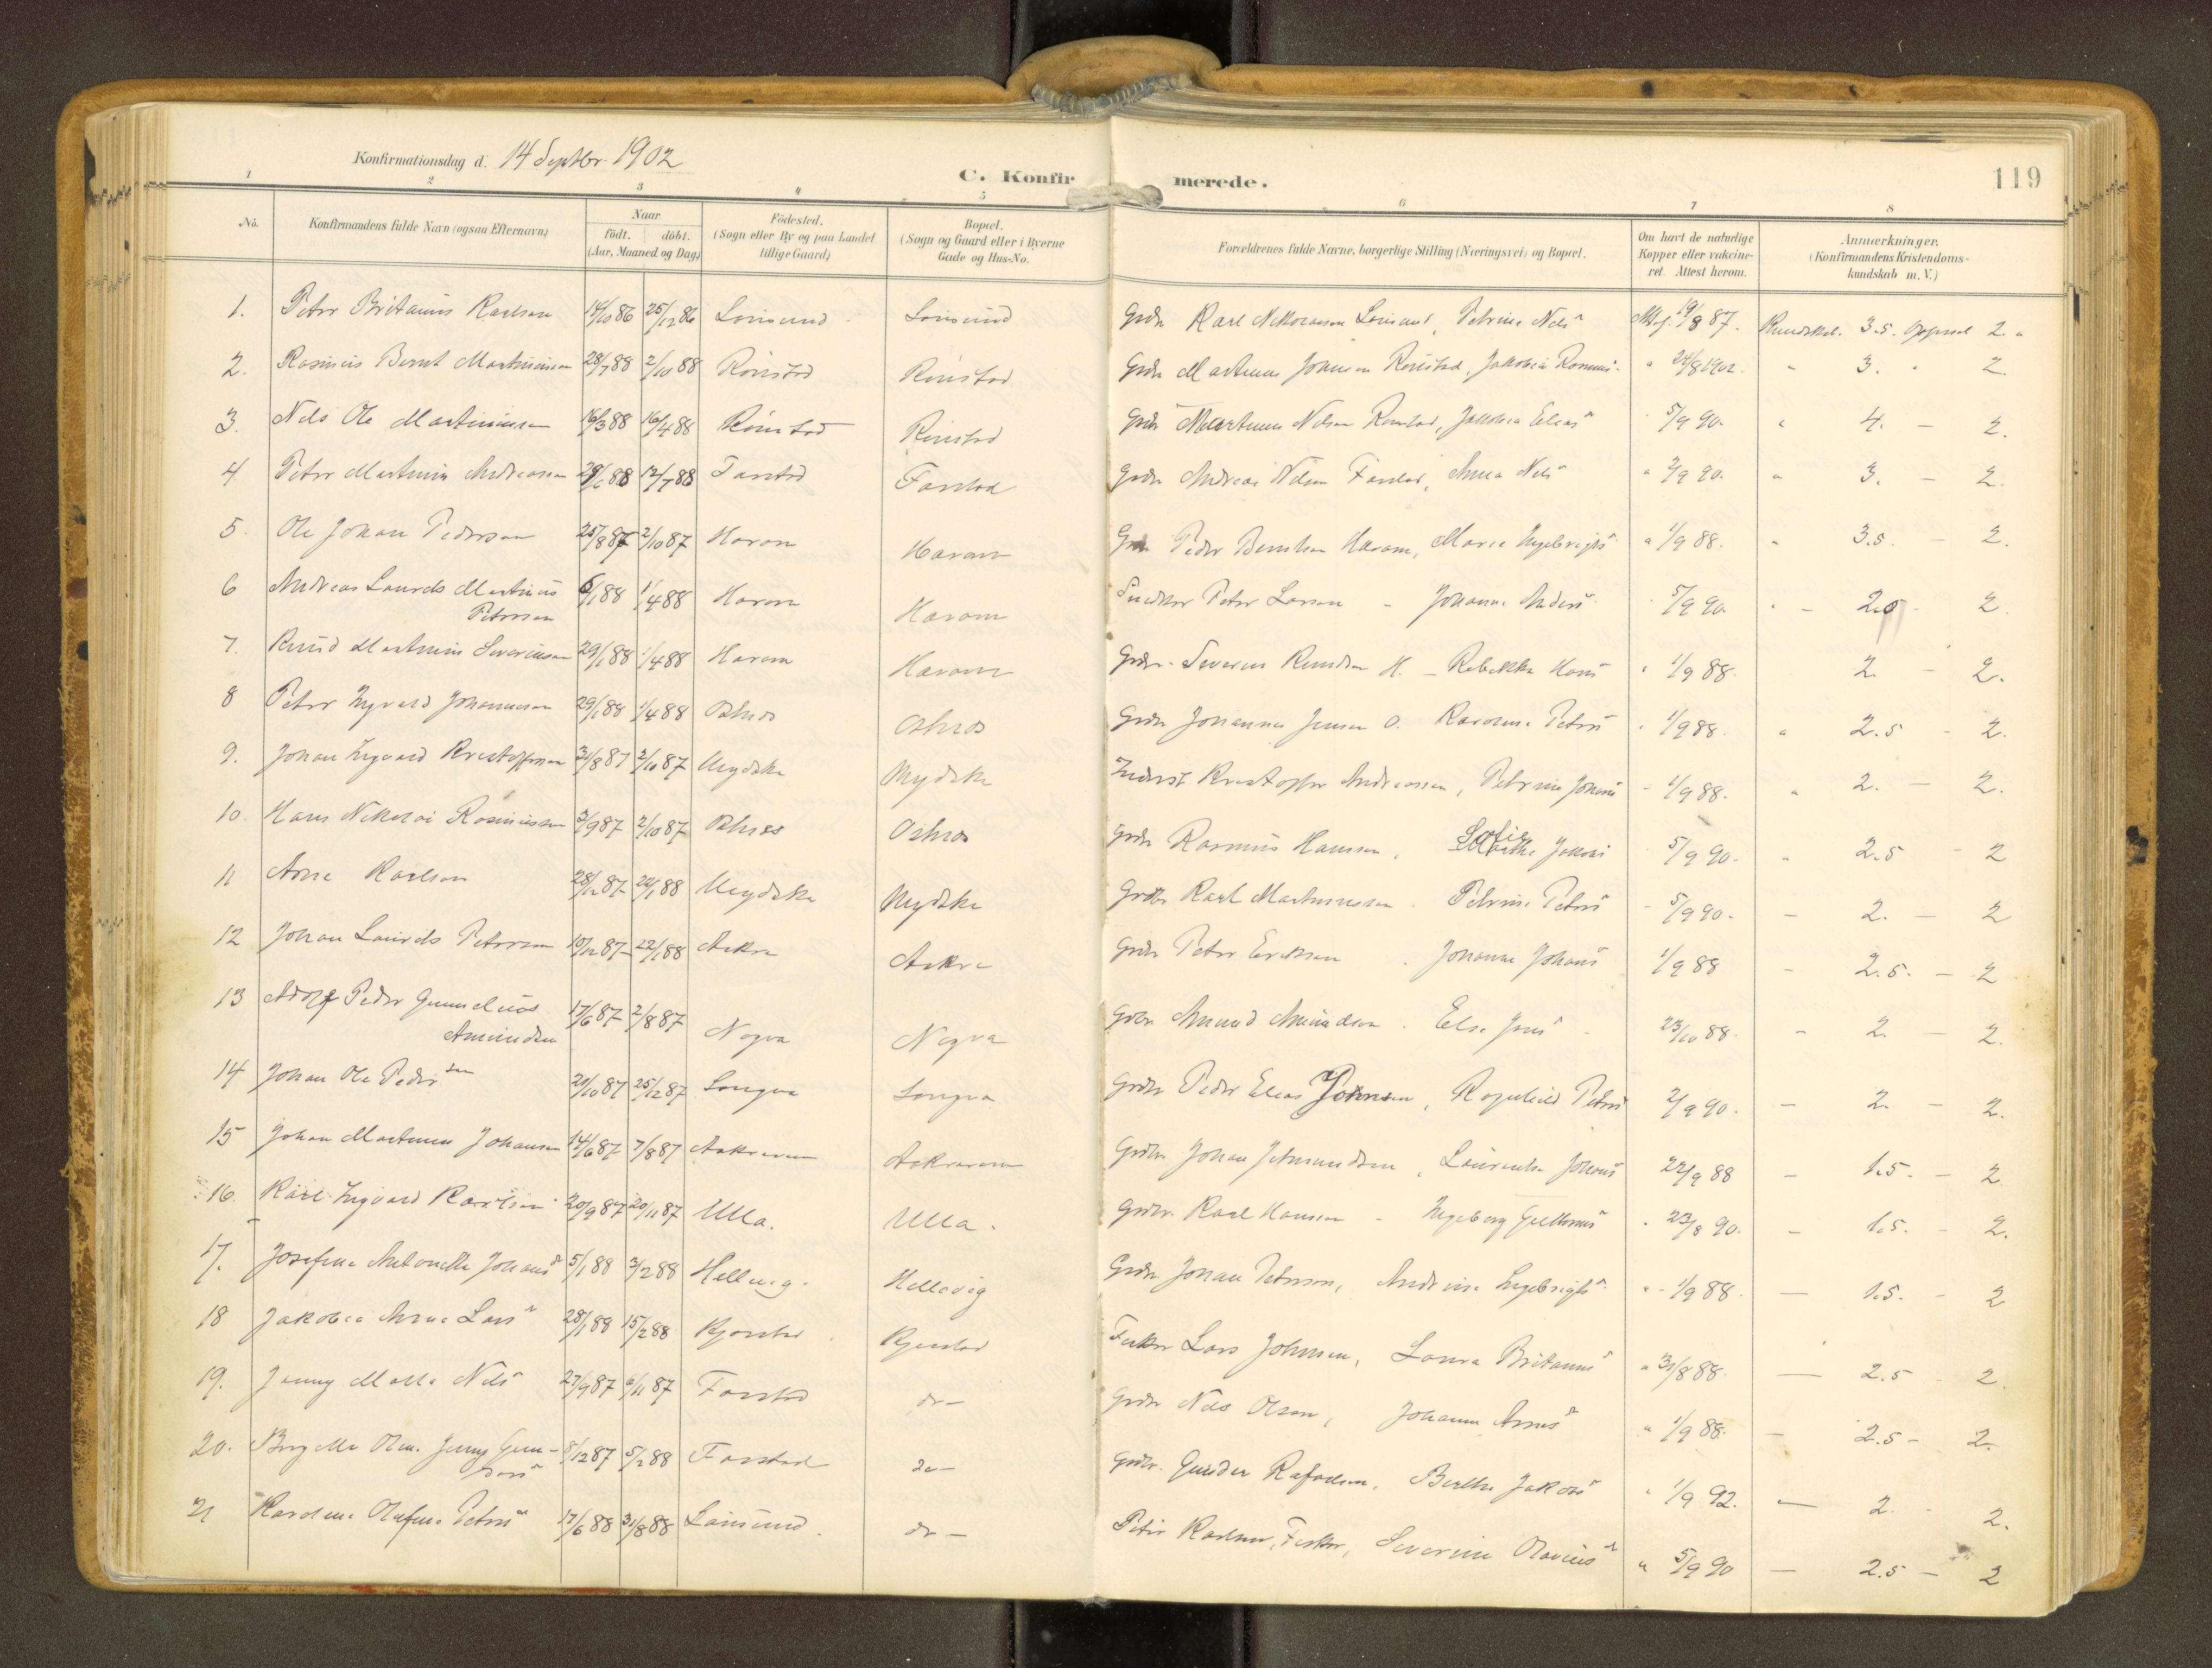 Konfirmationsdag d. 14 Septbr. 1902
C. Konfirmerede.
119
1 2 3 4 5 6 7 8
No. Konfirmandens fulde Navn (ogsaa Efternavn) Naar født. døbt. (Aar, Maaned og Dag) Födested. (Sogn eller By og paa Landet tillige Gaard) Bopæl. (Sogn og Gaard eller i Byerne Gade og Hus-No. Forældrenes fulde Navne, borgerlige Stilling (Næringsvei) og Bopæl. Om havt de naturlige Kopper eller vakcineret. Attest herom. Anmærkninger. (Konfirmandens Kristendomskundskab m. V.)
1. Peter Britanus Karlsen 14/10 86 25/12 86 Lonsund Lonsund Grdbr Karl Nikolaisen Lonsund, Petrine Nels 19/8 87. Kundskab. 3.5. Opførsel 2.
2. Rasmus Bernt Martinusen 28/7 88 2/10 88 Rønstad Rønstad Grdbr Martinus Johnsen Rønstad, Jakobia Rasmus " 24/8 1902. " 3. " 2
3. Nels Ole Martinusen 16/3 88 16/4 88 Rønstad Rønstad Grdbr Martinus Nelsen Ronstad, Jakobia Elias 5/9 90. " 4. – 2.
4. Peter Martinus Andreassen 29/6 88 12/7 88 Farstad Farstad Grdbr Andreas Nelsen Farstad, Anna Nels " 2/9 90. " 3. – 2.
5. Ole Johan Pedersen 25/8 87 2/10 87 Haram Haram Peder Berntsen Haram, Marie Ingebrigts " 1/9 88. " 3.5. – 2.
6 Andreas Laurits Martinus Petersen 6/1 88 1/4 88 Haram Haram Snedker Peter Larsen – Johanna Anders 5/9 90. " – 2.5 – 2.
7. Knud Martinus Severinsen 29/1 88 1/4 88 Haram Haram Grdbr. Severin Knudsen H. – Rebekka Hans " 1/9 88 2 – 2.
8 Peter Ingvald Johannesen 29/1 88 1/4 88 Oshos Oshos Grdbr Johannes Jensen O. Karoline Peters " 1/9 88. " 2.5 – 2.
9. Johan Ingvard Kristoffersen 31/8 87 2/10 87 Uigdske Mydske Inderst Kristoffer Andreassen, Petrine Johans – 1/9 88. " 2. – 2.
10. Hans Nikolai Rasmussen 3/9 87 2/10 87 Oshos Oshos Grdbr Rasmus Hanssen, Sofie Marthe Jakobs 5/9 90. " 2.5 – 2
11 Arne Karlsen 28/12 87 22/1 88 Uigdske Mydske Grdbr Karl Martinussen. Petrine Peters – 5/9 90. – 2. – 2
12 Johan Laurits Petersen 10/12 87 22/1 88 Aakre Aakre Grdbr Peter Eriksen. Johanne Johans 1/9 88 – 2.5. – 2
13 Adolf Peder Gunnelius Amundsen 17/6 87 2/8 87 Nogva Nogva Grdbr Amund Amundsen. Else Jens – 23/10 88. – 2 – 2.
14 Johan Ole Pedersen 20/10 87 25/12 87 Longva Longva Grdbr Peder Elias Johnsen, Ragnhild Peters 2/9 90. – 2. – 2.
15 Johan Martinus Johansen 14/6 87 7/8 87 Aakrevem Aakrevem Grdbr Johan Johnsen, Laurentse Johans 22/9 88 – 1.5. – 2
16. Karl Ingvard Karlsen 20/9 87 20/11 87 Ulla. Ulla. Grdbr. Karl Hansen – Ingeborg Guttorms . 23/8 90. – 1.5. – 2.
17. Josefine Antonette Johans dr 5/1 88 3/2 88 Hellevig. Hellevig Grdbr Johan Petersen, Andrine Ingebrigts " – 1/9 88. – 1.5. – 2
18 Jakobia Anna Lars dr 28/1 88 15/2 88 Kjerstad. Kjerstad Fisker Lars Johnsen, Laura Britanus " 31/8 88. – 2.5 – 2.
19. Jenny Malla Nels 27/9 87 6/11 87 Farstad do – Grdbr Nels Olsen, Johanne Arnes dr " 1/9 88. – 2.5 – 2.
20. Birgitte Oline Jenny Gunders 8/12 87 5/2 88 Farstad do – Grdbr. Gunder Rafaelsen, Berthe Jakobs " 1/9 92. – 2. – 2.
21 Karoline Olufine Peters dr 17/6 88 31/8 88 Lonsund. do – Peter Karlsen, Fisker, Severine Olavius dr " 5/9 90 – 2.5 – 2